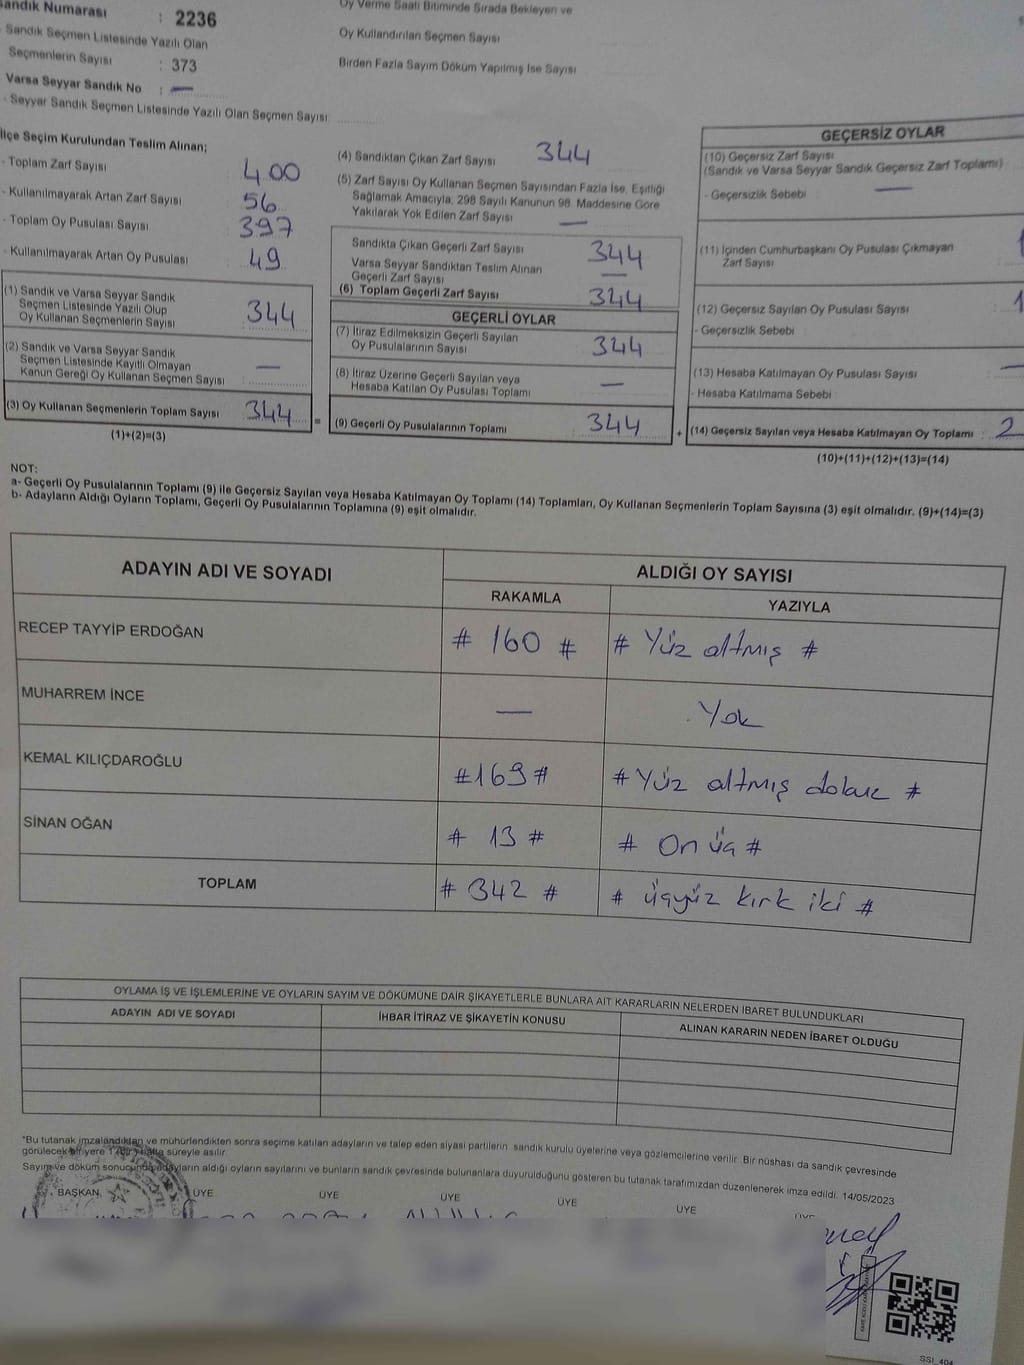 Sandık Numarası : 2236
- Sandık Seçmen Listesinde Yazılı Olan
Seçmenlerin Sayısı : 373
Varsa Seyyar Sandık No : —
- Seyyar Sandık Seçmen Listesinde Yazılı Olan Seçmen Sayısı:
Oy Verme Saati Bitiminde Sırada Bekleyen ve
Oy Kullandırılan Seçmen Sayısı
Birden Fazla Sayım Döküm Yapılmış İse Sayısı
İlçe Seçim Kurulundan Teslim Alınan;
- Toplam Zarf Sayısı 400
- Kullanılmayarak Artan Zarf Sayısı 56
- Toplam Oy Pusulası Sayısı 397
- Kullanılmayarak Artan Oy Pusulası 49
(1) Sandık ve Varsa Seyyar Sandık
Seçmen Listesinde Yazılı Olup
Oy Kullanan Seçmenlerin Sayısı 344
(2) Sandık ve Varsa Seyyar Sandık
Seçmen Listesinde Kayıtlı Olmayan
Kanun Gereği Oy Kullanan Seçmen Sayısı —
(3) Oy Kullanan Seçmenlerin Toplam Sayısı 344 =
(1)+(2)=(3)
(4) Sandıktan Çıkan Zarf Sayısı 344
(5) Zarf Sayısı Oy Kullanan Seçmen Sayısından Fazla İse, Eşitliği
Sağlamak Amacıyla, 298 Sayılı Kanunun 98. Maddesine Göre
Yakılarak Yok Edilen Zarf Sayısı —
Sandıkta Çıkan Geçerli Zarf Sayısı 344
Varsa Seyyar Sandıktan Teslim Alınan
Geçerli Zarf Sayısı —
(6) Toplam Geçerli Zarf Sayısı 344
GEÇERLİ OYLAR
(7) İtiraz Edilmeksizin Geçerli Sayılan
Oy Pusulalarının Sayısı 344
(8) İtiraz Üzerine Geçerli Sayılan veya
Hesaba Katılan Oy Pusulası Toplamı —
(9) Geçerli Oy Pusulalarının Toplamı 344 +
GEÇERSİZ OYLAR
(10) Geçersiz Zarf Sayısı
(Sandık ve Varsa Seyyar Sandık Geçersiz Zarf Toplamı)
- Geçersizlik Sebebi : —
(11) İçinden Cumhurbaşkanı Oy Pusulası Çıkmayan
Zarf Sayısı 1
(12) Geçersiz Sayılan Oy Pusulası Sayısı 1
- Geçersizlik Sebebi :
(13) Hesaba Katılmayan Oy Pusulası Sayısı —
- Hesaba Katılmama Sebebi :
(14) Geçersiz Sayılan veya Hesaba Katılmayan Oy Toplamı : 2
(10)+(11)+(12)+(13)=(14)
NOT:
a- Geçerli Oy Pusulalarının Toplamı (9) ile Geçersiz Sayılan veya Hesaba Katılmayan Oy Toplamı (14) Toplamları, Oy Kullanan Seçmenlerin Toplam Sayısına (3) eşit olmalıdır. (9)+(14)=(3)
b- Adayların Aldığı Oyların Toplamı, Geçerli Oy Pusulalarının Toplamına (9) eşit olmalıdır.
ADAYIN ADI VE SOYADI ALDIĞI OY SAYISI
RAKAMLA YAZIYLA
RECEP TAYYİP ERDOĞAN # 160 # # Yüz altmış #
MUHARREM İNCE — Yok
KEMAL KILIÇDAROĞLU #169# # Yüz altmış dokuz #
SİNAN OĞAN # 13 # # On üç #
TOPLAM # 342 # # üçyüz kırk iki #
OYLAMA İŞ VE İŞLEMLERİNE VE OYLARIN SAYIM VE DÖKÜMÜNE DAİR ŞİKAYETLERLE BUNLARA AİT KARARLARIN NELERDEN İBARET BULUNDUKLARI
ADAYIN ADI VE SOYADI İHBAR İTİRAZ VE ŞİKAYETİN KONUSU ALINAN KARARIN NEDEN İBARET OLDUĞU
*Bu tutanak imzalandıktan ve mühürlendikten sonra seçime katılan adayların ve talep eden siyasi partilerin sandık kurulu üyelerine veya gözlemcilerine verilir. Bir nüshası da sandık çevresinde
görülecek bir yere 1 hafta süreyle asılır.
Sayım ve döküm sonucunda adayların aldığı oyların sayılarını ve bunların sandık çevresinde bulunanlara duyurulduğunu gösteren bu tutanak tarafımızdan düzenlenerek imza edildi. 14/05/2023
BAŞKAN ÜYE ÜYE ÜYE ÜYE ÜYE
SSI_404